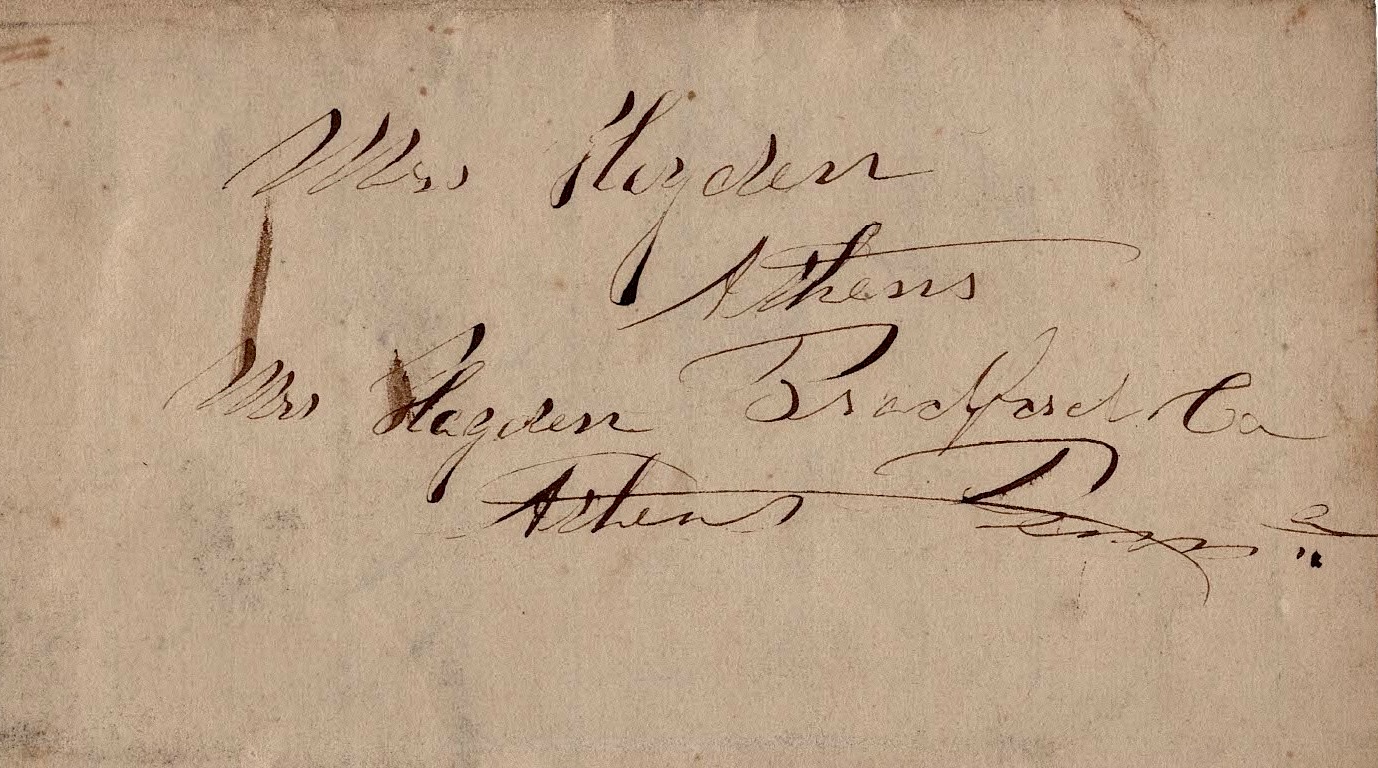 Mrs Hayden
Athens
Mrs Hayden Bradford Co
Athens Penn a